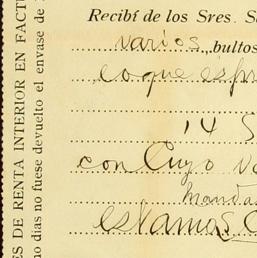 Recibí de los Sres. S
varios bultos
lo que
14 S
con Cuyo v
manda
estamos
S DE RENTA INTERIOR EN FACTU
no días no fuese devuelto el envase de